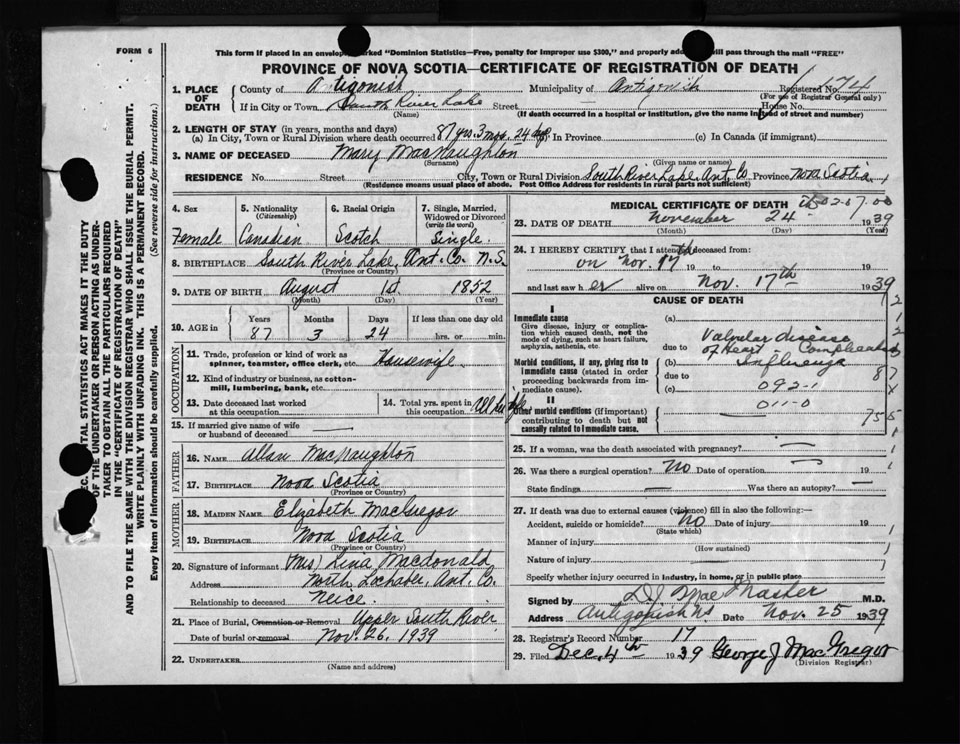 FORM 6
This form if placed in an envelope marked "Dominion Statistics—Free, penalty for improper use $300," and properly will pass through the mail "FREE"
PROVINCE OF NOVA SCOTIA—CERTIFICATE OF REGISTRATION OF DEATH
1. PLACE OF DEATH
County of Antigonish Municipality of Antigonish Registered No. 174
(For use of Registrar General only)
If in City or Town South River Lake Street House No.
(Name) (If death occurred in a hospital or institution, give the name instead of street and number)
2. LENGTH OF STAY (in years, months and days)
(a) In City, Town or Rural Division where death occurred 87 yrs. 3 mos. 24 dys (b) In Province (c) In Canada (if immigrant)
3. NAME OF DECEASED Mary MacNaughton
(Surname) (Given name or names)
RESIDENCE No. Street City, Town or Rural Division South River Lake, Ant. Co Province Nova Scotia
(Residence means usual place of abode. Post Office Address for residents in rural parts not sufficient)
4. Sex 5. Nationality (Citizenship) 6. Racial Origin 7. Single, Married, Widowed or Divorced (write the word)
Female Canadian Scotch Single
8. BIRTHPLACE South River Lake, Ant. Co. N.S.
(Province or Country)
9. DATE OF BIRTH August 1st 1852
(Month) (Day) (Year)
10. AGE in Years Months Days If less than one day old
87 3 24 hrs. or min.
OCCUPATION
11. Trade, profession or kind of work as spinner, teamster, office clerk, etc. Housewife
12. Kind of industry or business, as cotton-mill, lumbering, bank, etc.
13. Date deceased last worked at this occupation
14. Total yrs. spent in this occupation All her life
15. If married give name of wife or husband of deceased —
FATHER
16. NAME Allan MacNaughton
17. BIRTHPLACE Nova Scotia
(Province or Country)
MOTHER
18. MAIDEN NAME Elizabeth MacGregor
19. BIRTHPLACE Nova Scotia
(Province or Country)
20. Signature of informant (Mrs) Lena Macdonald
Address North Lochaber, Ant. Co.
Relationship to deceased Neice
21. Place of Burial, Cremation or Removal Upper South River
Date of burial or removal Nov. 26, 1939
22. UNDERTAKER
(Name and address)
MEDICAL CERTIFICATE OF DEATH
23. DATE OF DEATH November 24 1939
(Month) (Day) (Year)
24. I HEREBY CERTIFY that I attended deceased from:
on Nov. 17th 19 to 19
and last saw her alive on Nov. 17th 1939
CAUSE OF DEATH
I
Immediate cause
Give disease, injury or complication which caused death, not the mode of dying, such as heart failure, asphyxia, asthenia, etc.
(a)
due to Valvular disease of Heart
Morbid conditions, if any, giving rise to immediate cause (stated in order proceeding backwards from immediate cause).
(b) Influenza
due to
(c) 092-1
011-0
II
Other morbid conditions (if important) contributing to death but not causally related to immediate cause.
25. If a woman, was the death associated with pregnancy?
26. Was there a surgical operation? No Date of operation 19
State findings Was there an autopsy?
27. If death was due to external causes (violence) fill in also the following:—
Accident, suicide or homicide? No Date of injury 19
(State which)
Manner of injury
(How sustained)
Nature of injury
Specify whether injury occurred in industry, in home, or in public place
Signed by D J MacMaster M.D.
Address Antigonish NS Date Nov. 25 1939
28. Registrar's Record Number 17
29. Filed Dec. 4th 1939 George J MacGregor
(Division Registrar)
TAL STATISTICS ACT MAKES IT THE DUTY
OF THE UNDERTAKER OR PERSON ACTING AS UNDER-
TAKER TO OBTAIN ALL THE PARTICULARS REQUIRED
IN THE "CERTIFICATE OF REGISTRATION OF DEATH"
AND TO FILE THE SAME WITH THE DIVISION REGISTRAR WHO SHALL ISSUE THE BURIAL PERMIT.
WRITE PLAINLY WITH UNFADING INK. THIS IS A PERMANENT RECORD.
Every item of information should be carefully supplied. (See reverse side for instructions.)